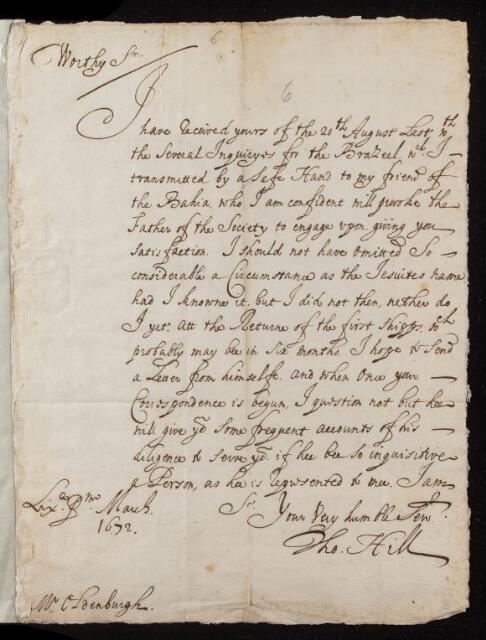 6
6
Worthy Sr.
I have received yours of the 20th August Last, wth
the Several Inquiryes for the Brazeel, wch. I
transmitted by a Safe Hand to my friend of
the Bahia who I am confident will provoke the
Father of the Society to engage vpon giving you
satisfaction. I should not have omitted So
considerable a Circumstance as the Iesuites name
had I knowne it, but I did not then, neither do
I yet. Att the Returne of the first shipps, wch
probably may bee in six months, I hope to send
a Letter from himselfe. and when once your
Correspondence is begun, I question not but hee
will give yo some frequent accounts of his
diligence to serve yo. if hee bee so inquisitive
a Person, as hee is Represented to mee. I am
Sr.
Your Very humble Serv
Tho. Hill
Lixa. Pmo March.
1672.
Mr Oldenburgh.